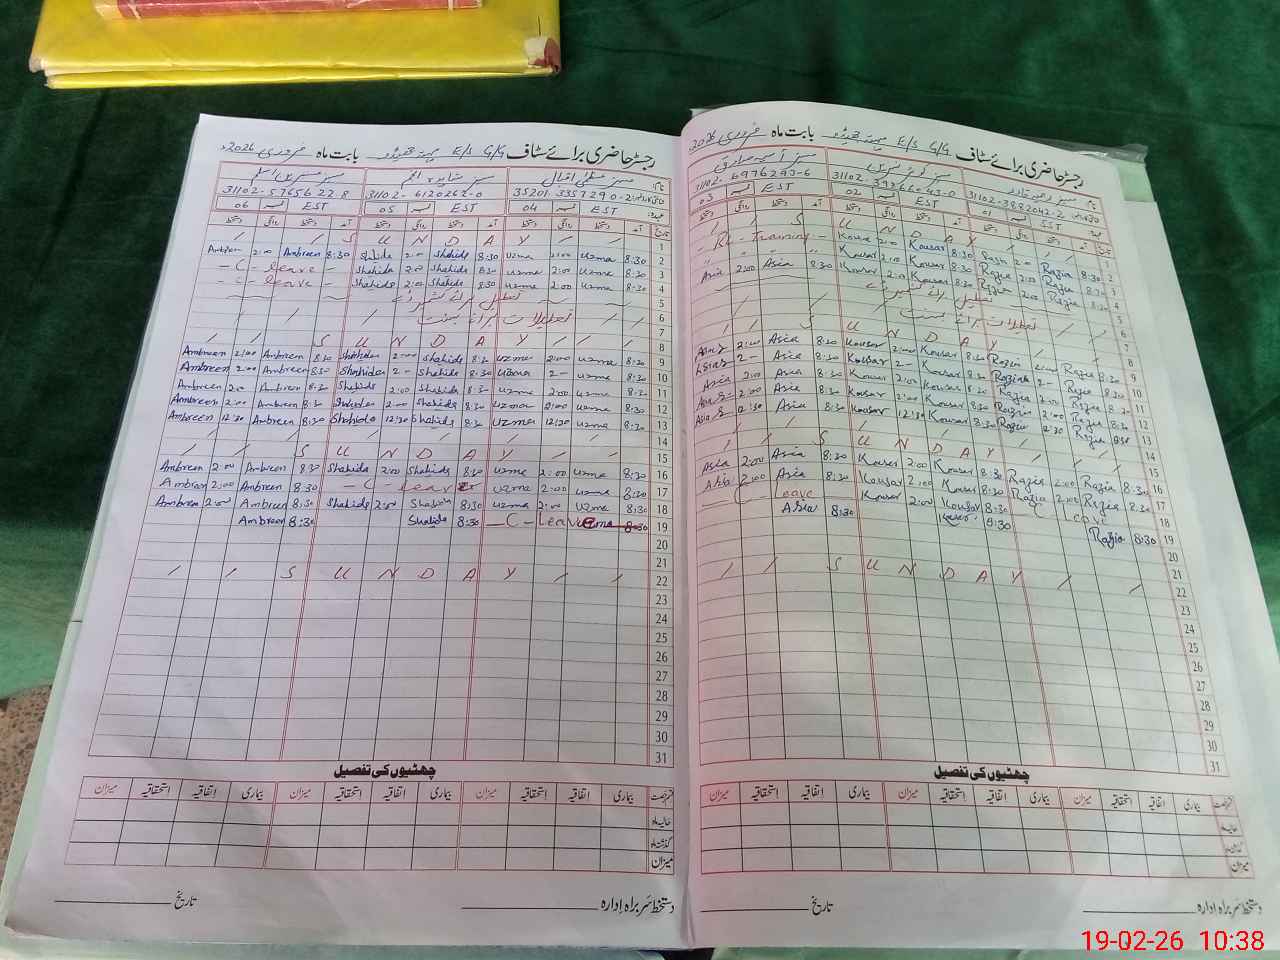 رجسٹر حاضری برائے سٹاف E/S G/G بابت ماہ فروری 2026ء
31102-5765622-8 31102-6120262-0 35201-3357290-2
06 EST 05 EST 04 EST
/ / S U N D A Y / / 1
Ambreen 2:00 Ambreen 8:30 Shahida 2:00 Shahida 8:30 uzma 2:00 uzma 8:30 2
- C - leave - Shahida 2:00 Shahida 8:30 uzma 2:00 uzma 8:30 3
- C - leave - Shahida 2:00 Shahida 8:30 uzma 2:00 uzma 8:30 4
5
تعطیلات برائے بسنت 6
7
/ / S U N D A Y / / 8
Ambreen 2:00 Ambreen 8:30 Shahida 2:00 Shahida 8:30 uzma 2:00 uzma 8:30 9
Ambreen 2:00 Ambreen 8:30 Shahida 2- Shahida 8:30 uzma 2- uzma 8:30 10
Ambreen 2:00 Ambreen 8:30 Shahida 2:00 Shahida 8:30 uzma 2:00 uzma 8:30 11
Ambreen 2:00 Ambreen 8:30 Shahida 2:00 Shahida 8:30 uzma 2:00 uzma 8:30 12
Ambreen 12:30 Ambreen 8:30 Shahida 12:30 Shahida 8:30 uzma 12:30 uzma 8:30 13
14
/ / S U N D A Y / / 15
Ambreen 2:00 Ambreen 8:30 Shahida 2:00 Shahida 8:30 uzma 2:00 uzma 8:30 16
Ambreen 2:00 Ambreen 8:30 - C - leave uzma 2:00 uzma 8:30 17
Ambreen 2:00 Ambreen 8:30 Shahida 2:00 Shahida 8:30 uzma 2:00 uzma 8:30 18
Ambreen 8:30 Shahida 8:30 - C - Leave uzma 8:30 19
20
21
/ / S U N D A Y / / 22
23
24
25
26
27
28
29
30
31
چھٹیوں کی تفصیل
بیماری اتفاقیہ استحقاقیہ میزان بیماری اتفاقیہ استحقاقیہ میزان بیماری اتفاقیہ استحقاقیہ میزان
میزان
دستخط سربراہ ادارہ تاریخ
رجسٹر حاضری برائے سٹاف E/S G/G بابت ماہ فروری 2026
31102-6976293-6 31102-3882042-2
03 EST 02 EST 01 SST
/ / S U N D A Y / / 1
- Training - Kousar 2:00 Kousar 8:30 Razia 2:00 Razia 8:30 2
Kousar 2:00 Kousar 8:30 Razia 2:00 Razia 8:30 3
Asia 2:00 Asia 8:30 Kousar 2:00 Kousar 8:30 Razia 2:00 Razia 8:30 4
5
تعطیلات برائے بسنت 6
7
/ / S U N D A Y / / 8
Asia 2:00 Asia 8:30 Kousar 2:00 Kousar 8:30 Razia 2:00 Razia 8:30 9
Asia 2- Asia 8:30 Kousar 2- Kousar 8:30 Razia 2- Razia 8:30 10
Asia 2:00 Asia 8:30 Kousar 2:00 Kousar 8:30 Razia 2:00 Razia 8:30 11
Asia 2:00 Asia 8:30 Kousar 2:00 Kousar 8:30 Razia 2:00 Razia 8:30 12
Asia 12:30 Asia 8:30 Kousar 12:30 Kousar 8:30 Razia 12:30 Razia 8:30 13
14
/ / S U N D A Y / / 15
Asia 2:00 Asia 8:30 Kousar 2:00 Kousar 8:30 Razia 2:00 Razia 8:30 16
Asia 2:00 Asia 8:30 Kousar 2:00 Kousar 8:30 Razia 2:00 Razia 8:30 17
- C - Leave Kousar 2:00 Kousar 8:30 Leave 18
Asia 8:30 Kousar 8:30 Razia 8:30 19
20
21
/ / S U N D A Y / / 22
23
24
25
26
27
28
29
30
31
چھٹیوں کی تفصیل
بیماری اتفاقیہ استحقاقیہ میزان بیماری اتفاقیہ استحقاقیہ میزان بیماری اتفاقیہ استحقاقیہ میزان
میزان
دستخط سربراہ ادارہ تاریخ
19-02-26 10:38